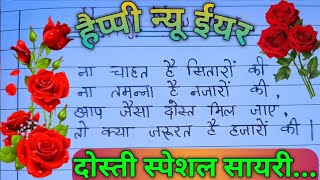 हैप्पी न्यू ईयर
ना चाहत है सितारों की
ना तमन्ना है नजारों की,
आप जैसा दोस्त मिल जाए,
तो क्या जरूरत है हजारों की।
दोस्ती स्पेशल सायरी...